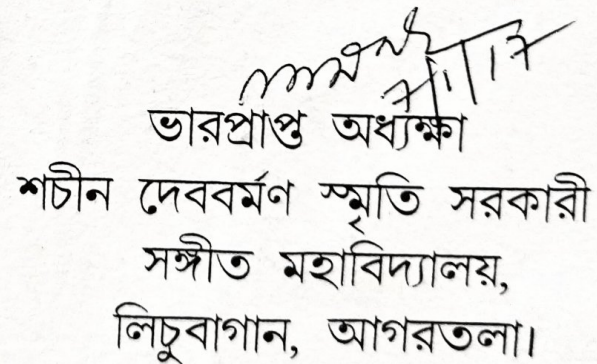 ভারপ্রাপ্ত অধ্যক্ষা
শচীন দেববর্মণ স্মৃতি সরকারী
সঙ্গীত মহাবিদ্যালয়,
লিচুবাগান, আগরতলা।